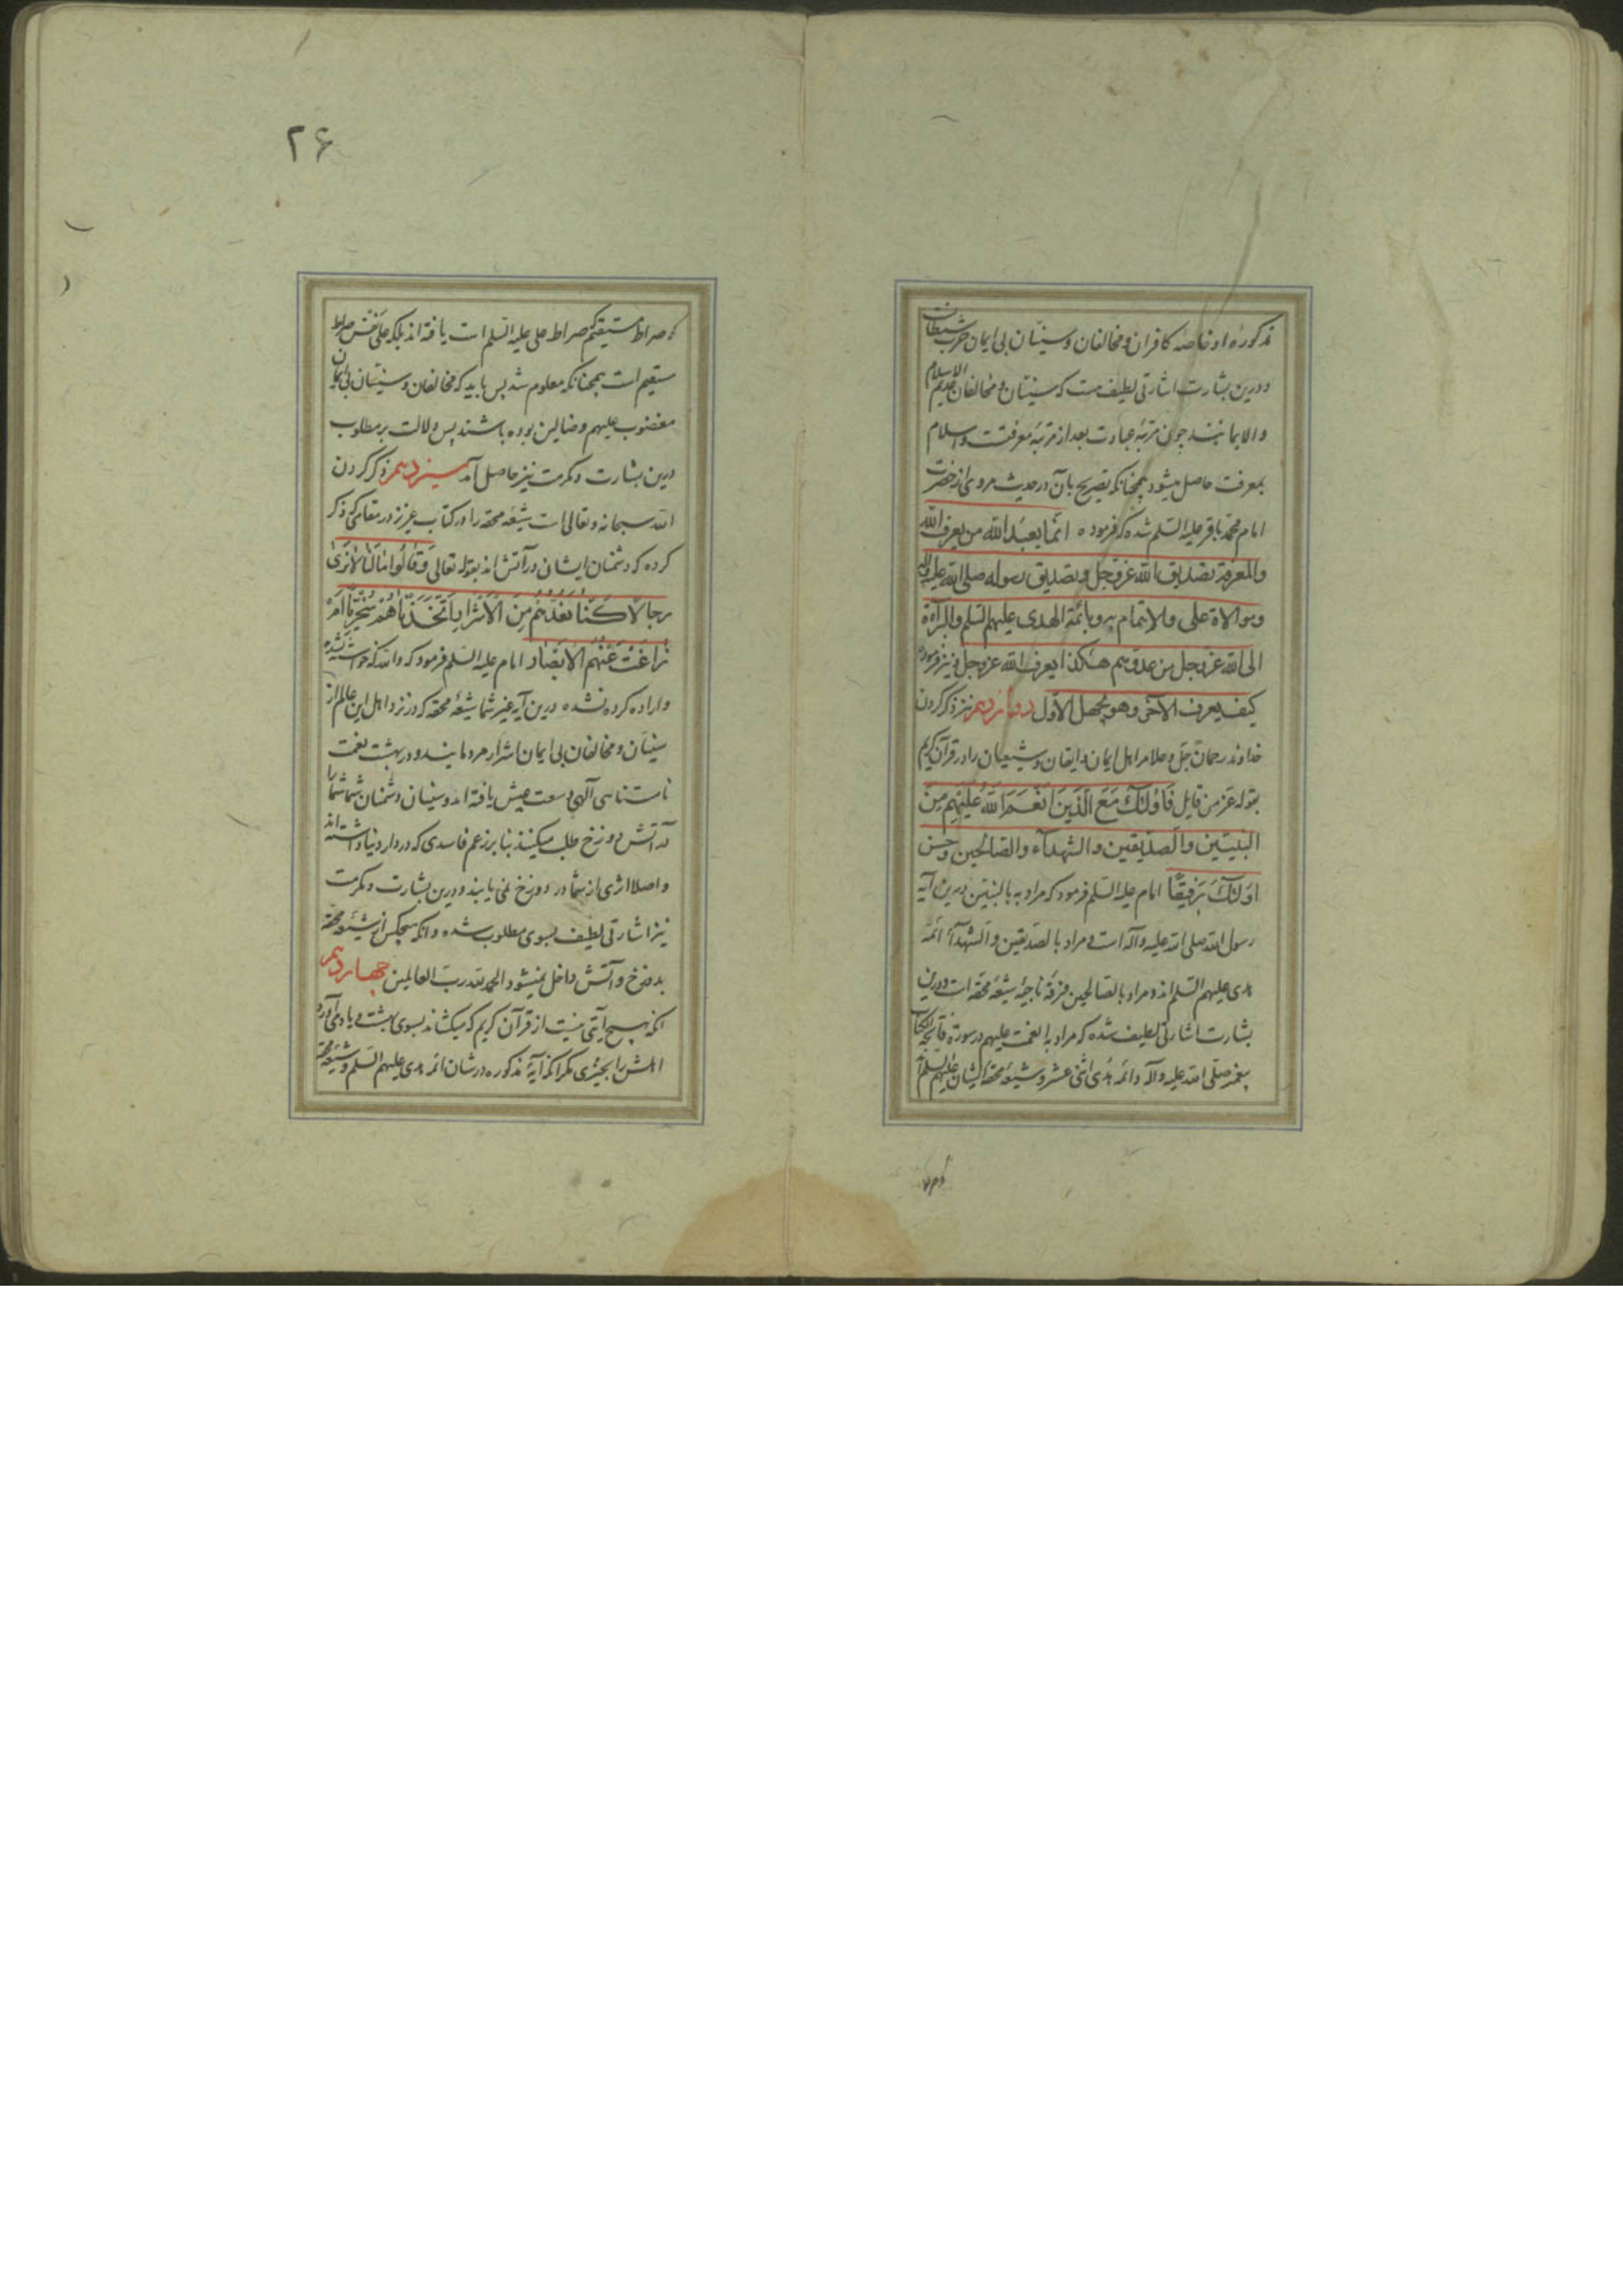 مذکوره او خاصهٔ کافران و مخالفان و سنیان بی ایمان حزب شیطان
و درین بشارت اشارتی لطیف هست که سنیان و مخالفان عدیم الاسلام
والایمانند چون مرتبهٔ عبادت بعد از مرتبهٔ معرفتست و اسلام
بمعرفت حاصل میشود همچنانکه تصریح بآن در حدیث مروی از حضرت
امام محمد باقر علیه السلم شده که فرموده انما یعبد الله من یعرف الله
والمعرفة تصدیق الله عز وجل وتصدیق رسوله صلی الله علیه وآله
وموالاة علی والایتمام به وبائمة الهدی علیهم السلم والبرآءة
الی الله عز وجل من عدوهم هکذا یعرف الله عز وجل و نیز فرموده
کیف یعرف الآخر وهو یجهل الاول دوازدهم نیز ذکر کردن
خداوند رحمان جل وعلا مر اهل ایمان و ایقان و شیعیان را در قرآن کریم
بقوله عز من قایل فَاُولئک مَعَ الَّذینَ اَنعَمَ اللّهُ عَلَیهِم مِنَ
النبیّین والصدّیقین والشهدآء والصالحین وحسن
اولئک رَفیقًا امام علیه السلم فرمود که مراد به بالنبیین درین آیه
رسول الله صلی الله علیه وآله است و مراد بالصدیقین والشهدآء ائمهٔ
هدی علیهم السلم اند و مراد بالصالحین فرقهٔ ناجیهٔ شیعهٔ محقه است و درین
بشارت اشارتی لطیف شده که مراد بانعمت علیهم در سورهٔ فاتحة الکتاب
پیغمبر صلی الله علیه وآله و ائمهٔ هدی اثنی عشر و شیعهٔ محقهٔ ایشان علیهم السلم اند
۲۶
که صراط مستقیم که صراط علی علیه السلم است یافته اند بلکه علی نفس صراط
مستقیم است همچنانکه معلوم شد پس باید که مخالفان و سنیان بی ایمان
مغضوب علیهم وضالین بوده باشند پس دلالت بر مطلوب
درین بشارت و مکرمت نیز حاصل آمد سیزدهم ذکر کردن
الله سبحانه وتعالی است شیعهٔ محقه را در کتاب عزیز در مقامی که ذکر
کرده که دشمنان ایشان در آتش اند بقوله تعالی وَقَالُوا مَا لَنَا لَا نَرَیٰ
رِجالًا کُنَّا نَعُدُّهُم مِنَ الاَشرَارِ اَتَّخَذنَاهُم سُخرِیًّا اَم
زاغَت عَنهُمُ الاَبصَار امام علیه السلم فرمود که والله که خواسته نشده
و اراده کرده نشده درین آیه غیر شما شیعهٔ محقه که در نزد اهل این عالم از
سنیان و مخالفان بی ایمان اشرار مردمانید و در بهشت نعمت
نامتناهی آلهی وسعت عیش یافته اید و سنیان دشمنان شما شما را
در آتش دوزخ طلب میکنند بنابر زعم فاسدی که در دار دنیا داشته اند
و اصلا اثری از شما در دوزخ نمی یابند و درین بشارت و مکرمت
نیز اشارتی لطیف بسوی مطلوب شده و آنکه هیچکس از شیعهٔ محقه
بدوزخ و آتش داخل نمیشود الحمد لله رب العالمین چهاردهم
آنکه هیچ آیتی نیست از قرآن کریم که میکشاند بسوی بهشت و یاد می آورد
اهلش را بخیری مگر آنکه آیهٔ مذکوره در شان ائمهٔ هدی علیهم السلم و شیعهٔ محقه